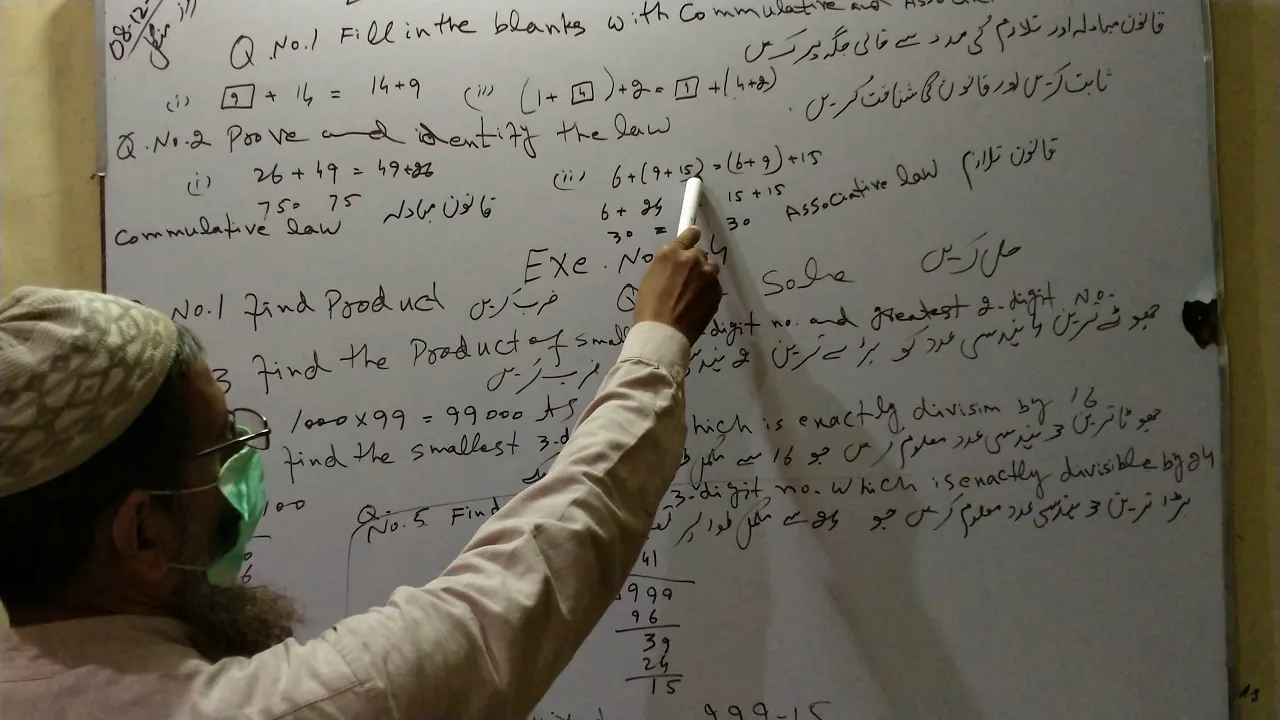 08-12
Q.No.1 Fill in the blanks with Commulative and
قانون مبادلہ اور تلازم کی مدد سے خالی جگہ پر کریں
(i) 9 + 14 = 14+9 (ii) (1+ 4)+2 = 1 +(4+2)
Q.No.2 Prove and identify the law
ثابت کریں اور قانون کی شناخت کریں.
(i) 26+49 = 49+26 (ii) 6+(9+15) = (6+9)+15
75= 75 قانون مبادلہ 6+ 24 15+15
Commulative law 30 = 30 Associative law قانون تلازم
Exe.No 4
No.1 Find Product ضرب کریں Q Solve حل کریں
3 Find the Product of small digit no. and greatest 2-digit No.
ضرب کریں چھوٹے ترین 4 ہندسی عدد کو بڑے ترین 2
1000x99 = 99000
Find the smallest 3-d which is exactly divisim by 16
چھوٹا ترین 3 ہندسی عدد معلوم کریں جو 16 سے مکمل
100
Q No.5 Find 3-digit no. which is exactly divisible by 24
بڑا ترین 3 ہندسی عدد معلوم کریں جو 24 سے مکمل طور پر
6
41
999
96
39
24
15
999-15